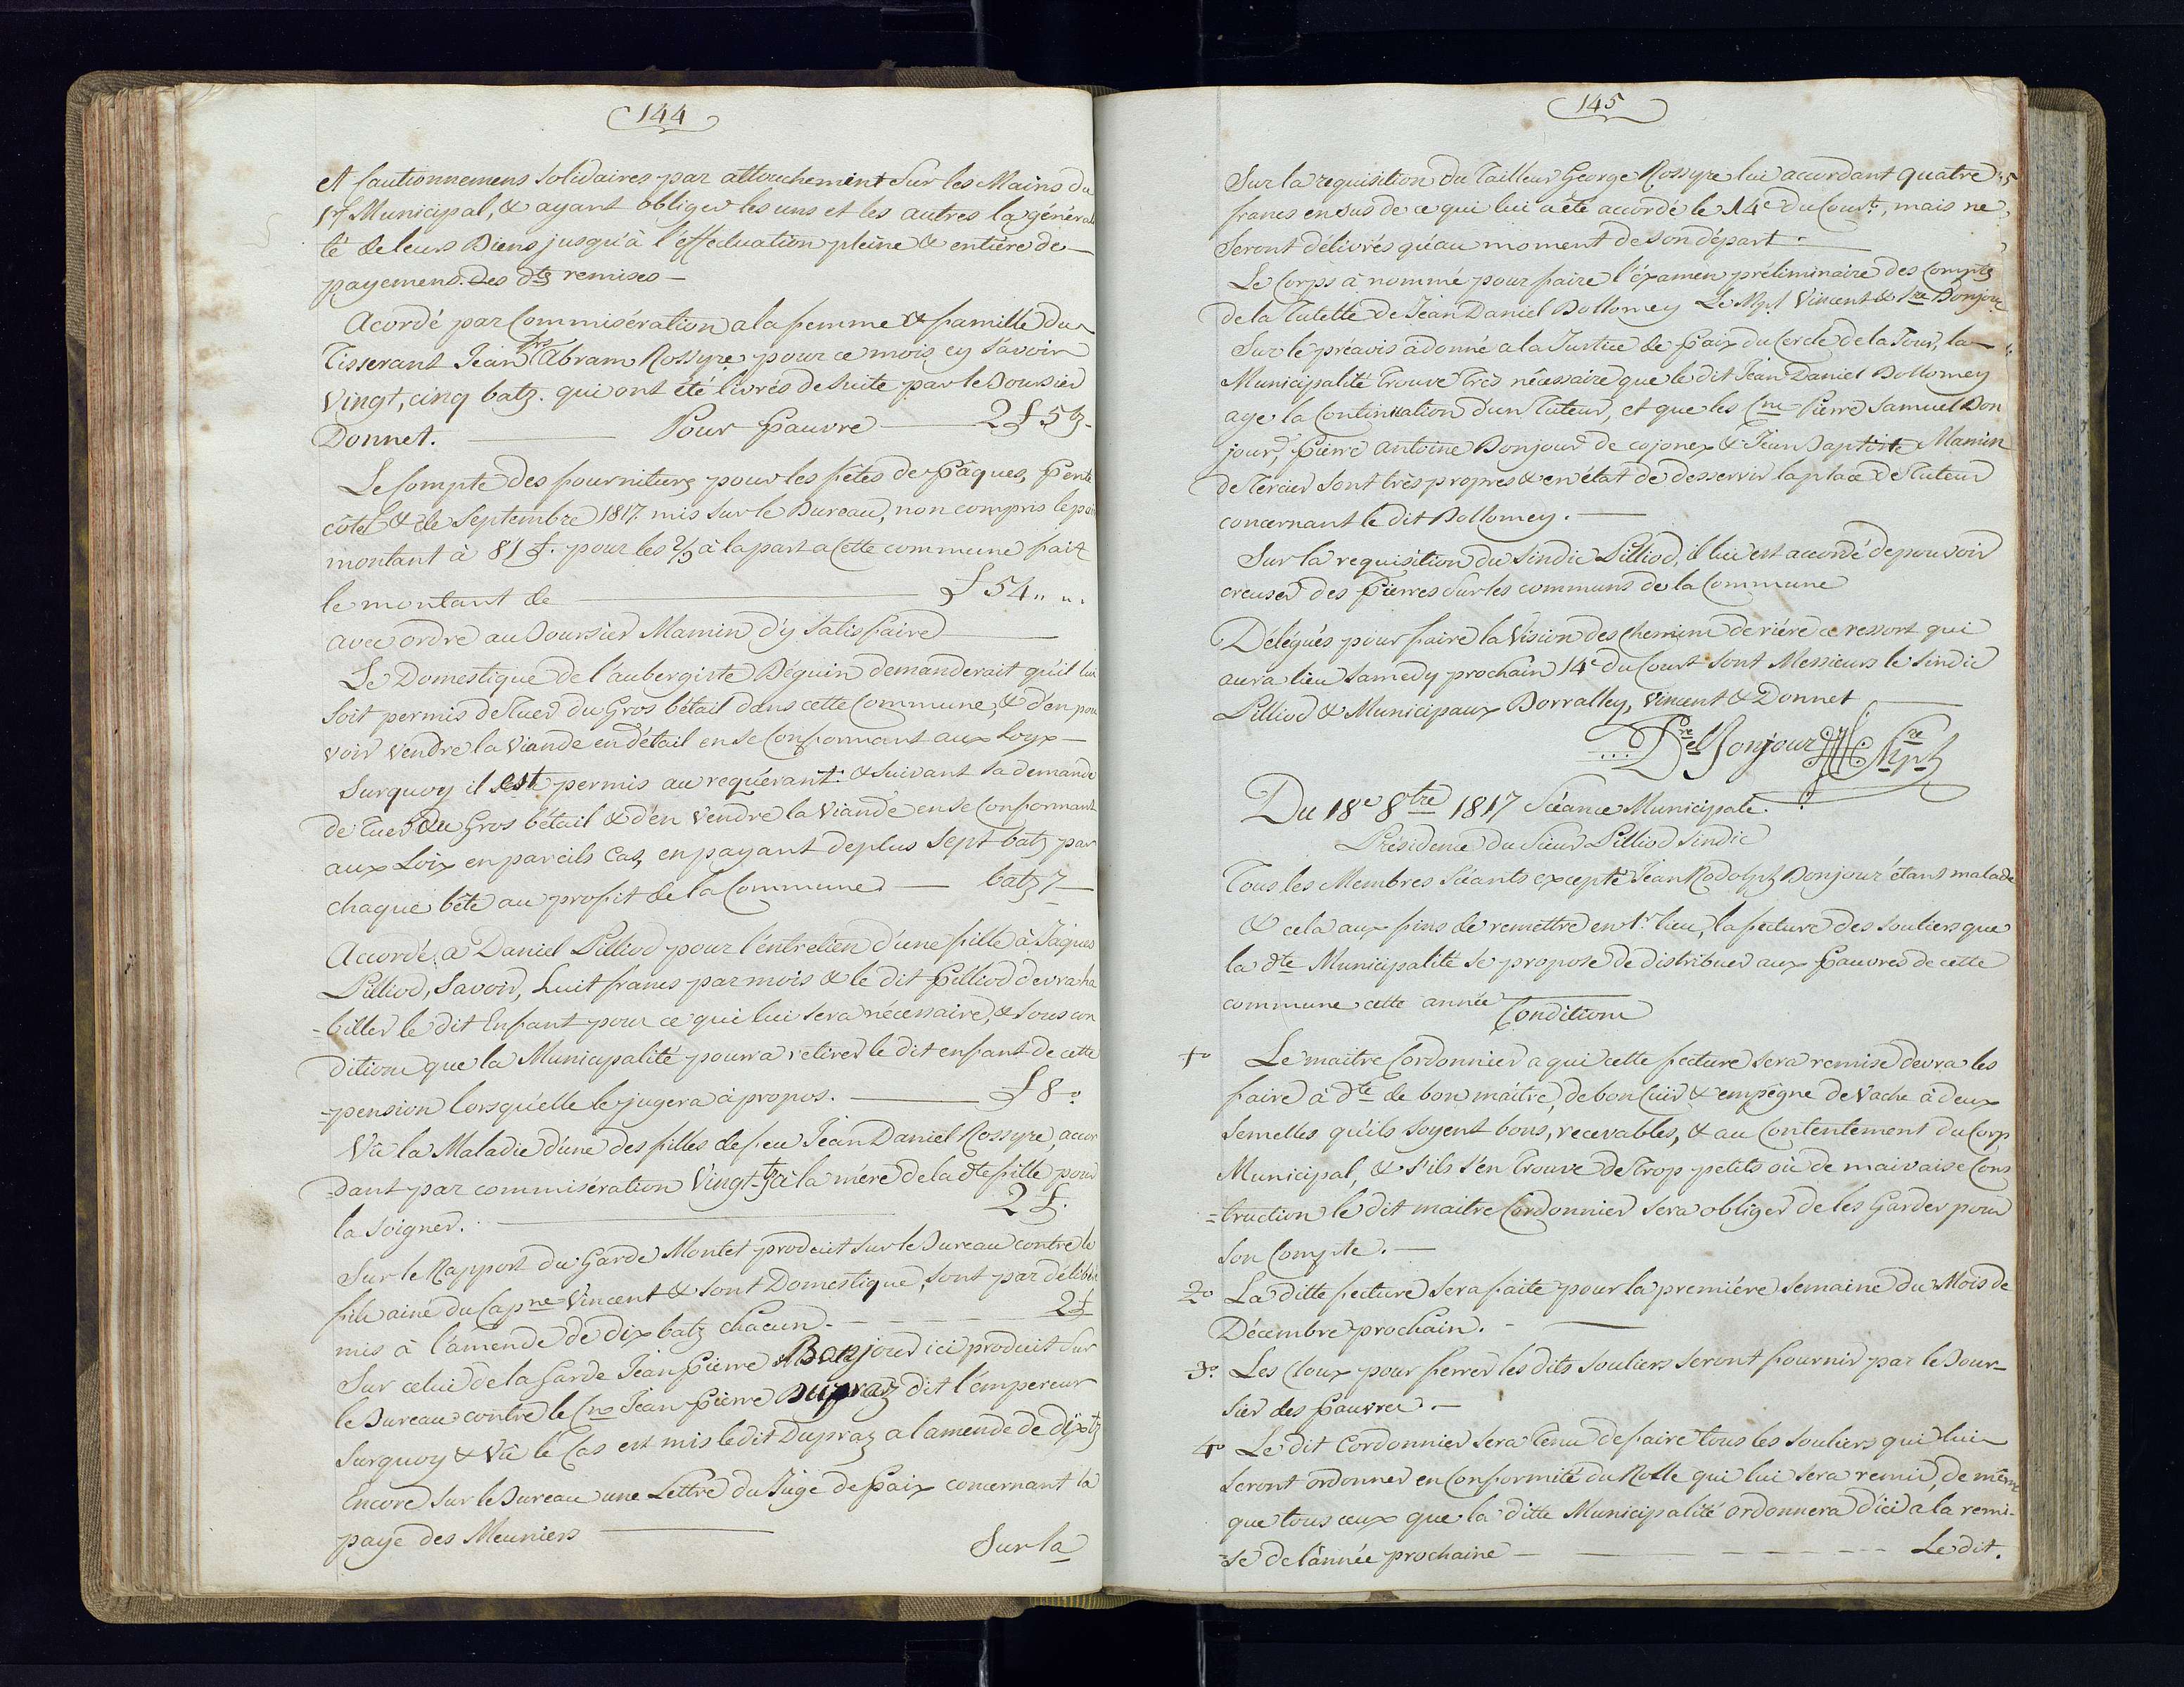 144
et Cautionnemens solidaires par attouchement sur les Mains du
Pt. Municipal, & ayant obliger les uns et les autres la général
té de leurs Biens jusqu'à l'éffectuation pleine & entière de
payemens. des dtes remises —
Acordé par Commisération a la femme & famille du
Tisserant Jean frs Abram Rossyre pour ce mois cy savoir
Vingt, cinq batz. qui ont été livrés de suite par le Boursier
Donnet. — Pour Pauvre — 2 £ 5 bz.
Le Compte des fournitures pour les fêtes de Pâques, Pente
côte & de Septembre 1817. mis sur le Bureau, non compris le pain
montant à 81 £. pour les 2/3 à la part a Cette commune fait
le montant de — £ 54 „ „.
avec ordre au Boursier Mamin d'y satisfaire —
Le Domestique de l'aubergiste Béguin demanderait qu'il lui
soit permis de Tuer du Gros bétail dans cette Commune, & d'en pou
voir vendre la Viande en détail en se Conformant aux Loyx —
Surquoy il est permis au requérant & suivant sa demande
de Tuer du Gros bétail & d'en Vendre la Viande en se Conformant
aux Loix en pareils Cas, en payant de plus Sept batz par
chaque bête au profit de la Commune — batz 7 —
Accordé a Daniel Pilliod pour l'entretien d'une fille à Jaques
Pilliod, Savoir, huit francs par mois & le dit Pilliod devra ha
=biller le dit Enfant pour ce qui lui sera nécessaire, & sous con
dition que la Municipalité pourra retirer le dit enfant de cette
=pension lorsqu'elle le jugera à propos. — £ 8 „
Vû la Maladie d'une des filles de feu Jean Daniel Rossyre, accor
dant par commisération Vingt bz à la mére de la dte fille pour
la soigner. — 2 £.
Sur le Rapport du Garde Montet produit sur le Bureau contre le
fils ainé du Capne Vincent & sont Domestique, sont par délibéré
mis à l'amende de dix batz chacun. — 2 £
Sur celui de la Garde Jean Pierre Bonjour ici produit sur
le Bureau contre le Cne Jean Pierre Dupraz dit l'empereur
Surquoy & Vû le Cas est mis le dit Dupraz a l'amende de dix bz
Encore sur le Bureau une Lettre du Juge de Paix concernant la
paye des Meuniers —
Sur la
145
Sur la requisition du Tailleur George Rossyre lui accordant quatre
francs en sus de ce qui lui a été accordé le 14e du Court., mais ne
Seront délivrés qu'au moment de son départ. —
Le Corps à nommé pour faire l'éxamen préliminaire des Comptes
de la Tutelle de Jean Daniel Bollomey Le Mpl Vincent & Sre Bonjour
Sur le préavis à donné a la Justice de Paix du Cercle de la Tour, la
Municipalité Trouve très nécessaire que le dit Jean Daniel Bollomey
aye la Continuation d'un Tuteur, et que les Cne Pierre Samuel Bon
jour, Pierre Antoine Bonjour de cojonex & Jean Baptiste Mamin
de Tercier sont très propres & en état de desservir la place de Tuteur
concernant le dit Bollomey. —
Sur la requisition du Sindic Pilliod, il lui est accordé de pouvoir
creuser des Pierres sur les communs de la Commune
Délégués pour faire la Vision des chemins deriére ce ressort qui
aura lieu samedy prochain 14e du Court sont Messieurs le Sindic
Pilliod & Municipaux Borralley, Vincent & Donnet —
Bonjour
Du 18e 8tre 1817 Séance Municipale.
Présidence du Sieur Pilliod Sindic
Tous les Membres Séants excepté Jean Rodolph Bonjour étant malade
& cela aux fins de remettre en 1r lieu, la fecture des souliers que
la dte Municipalité se propose de distribuer aux Pauvres de cette
commune cette année
Conditions
1o Le maitre Cordonnier a qui cette fecture sera remise devra les
faire à dte de bon maître, de bon Cuir & empeigne de Vache à deux
semelles qu'ils soyent bons, recevables, & au Contentement du Corp
Municipal, & s'ils s'en Trouve de trop petits ou de maivaise Cons
=truction le dit maitre Cordonnier sera obliger de les Garder pour
son Compte. —
2o La ditte fecture sera faite pour la première semaine du Mois de
Décembre prochain. —
3o. Les Cloux pour ferrer les dits souliers seront fournir par le Bour-
sier des Pauvres. —
4o Le dit Cordonnier sera tenu de faire tous les souliers qui lui
seront ordonner en Conformité du Rolle qui lui sera remis, de même
que tous ceux que la ditte Municipalité ordonnera d'ici a la remi-
=se de l'année prochaine — Le dit.